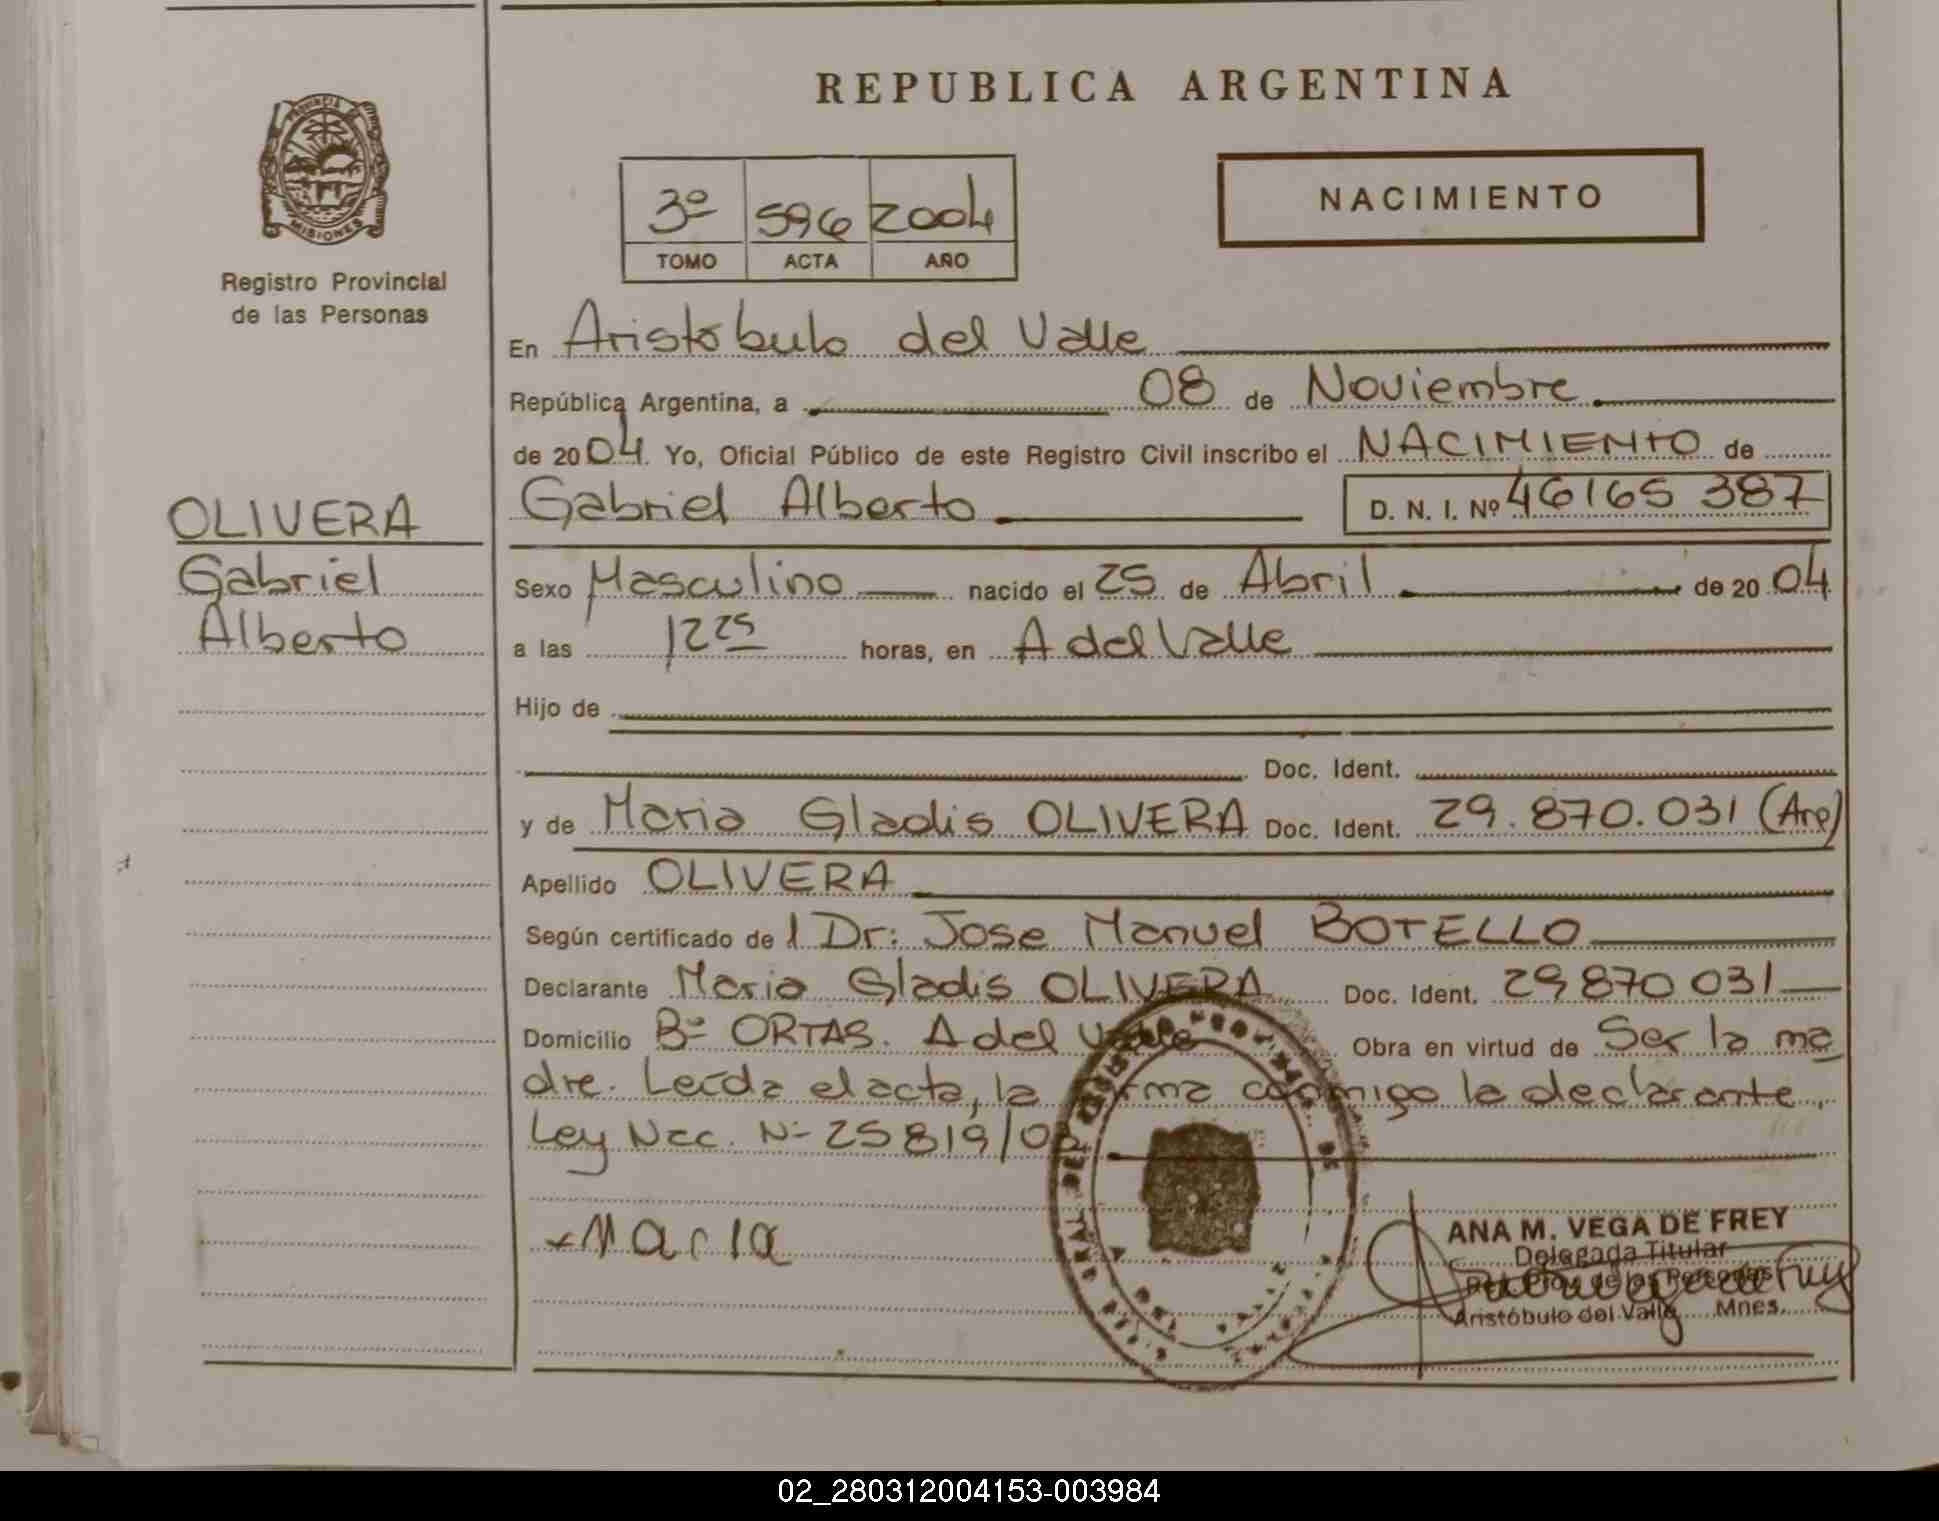 REPUBLICA ARGENTINA
PROVINCIA DE MISIONES
Registro Provincial
de las Personas
3º 596 2004
TOMO ACTA AÑO
NACIMIENTO
En Aristobulo del Valle
República Argentina, a 08 de Noviembre
de 2004. Yo, Oficial Público de este Registro Civil inscribo el NACIMIENTO de
Gabriel Alberto D. N. I. Nº 46165 387
OLIVERA
Gabriel
Alberto
Sexo Masculino nacido el 25 de Abril de 2004
a las 12 25 horas, en A del Valle
Hijo de
Doc. Ident.
y de Maria Gladis OLIVERA Doc. Ident. 29.870.031 (Arg)
Apellido OLIVERA
Según certificado del Dr: Jose Manuel BOTELLO
Declarante Maria Gladis OLIVERA Doc. Ident. 29 870 031
Domicilio Bº ORTAS. A del Valle Obra en virtud de Ser la ma
dre. Leída el acta, la firma conmigo la declarante.
Ley Nac. Nº 25819/
Maria
ANA M. VEGA DE FREY
Delegada Titular
Reg. Prov. de las Personas
Aristóbulo del Valle Mnes.
02_280312004153-003984